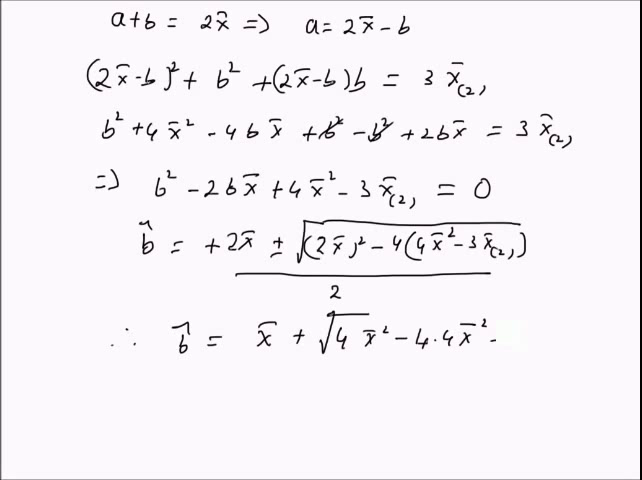 a+b = 2x̄ => a = 2x̄ - b
(2x̄-b)² + b² + (2x̄-b)b = 3 x̄₍₂₎
b² + 4x̄² - 4bx̄ + b² - b² + 2bx̄ = 3 x̄₍₂₎
=> b² - 2bx̄ + 4x̄² - 3x̄₍₂₎ = 0
b̂ = +2x̄ ± √(2x̄)² - 4(4x̄² - 3x̄₍₂₎)
2
∴ b̂ = x̄ + √4 x̄² - 4·4x̄² -